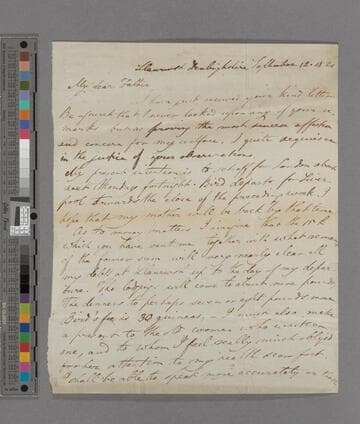 Llanrwst Denbighshire September 12. 18
My dear Father
I have just received your kind letter
Be assured that I never looked upon any of your re
marks but as proving the most sincere affection
and concern for my welfare. I quite acquiesce
in the justice of your observations
My present intention is to set off for London about
next Monday fortnight. Bird departs for Liver
pool towards the close of the preceding week. I
hope that my mother will be back by that time
As to money matters I imagine that the
which you have sent me together with what remains
of the former sum will very nearly clear all
my bills at Llanrwst up to the day of my depar
ture. The lodgings will come to about nine pounds
The dinners to perhaps seven or eight pounds more
Bird's fee is 30 guineas, I must also make
a present to the women who wait upon
me, and to whom I feel really much obliged
for their attention to my health &c &c
I shall be able to speak more accurately in a